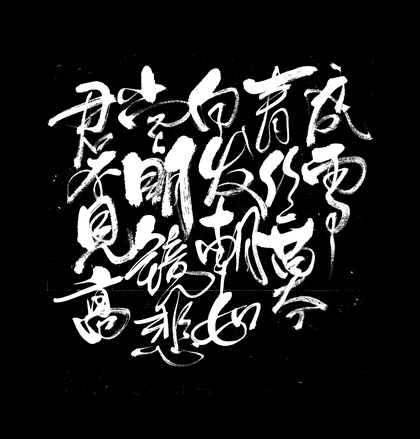 君不見高
堂明鏡悲
白发朝如
青丝暮
成雪